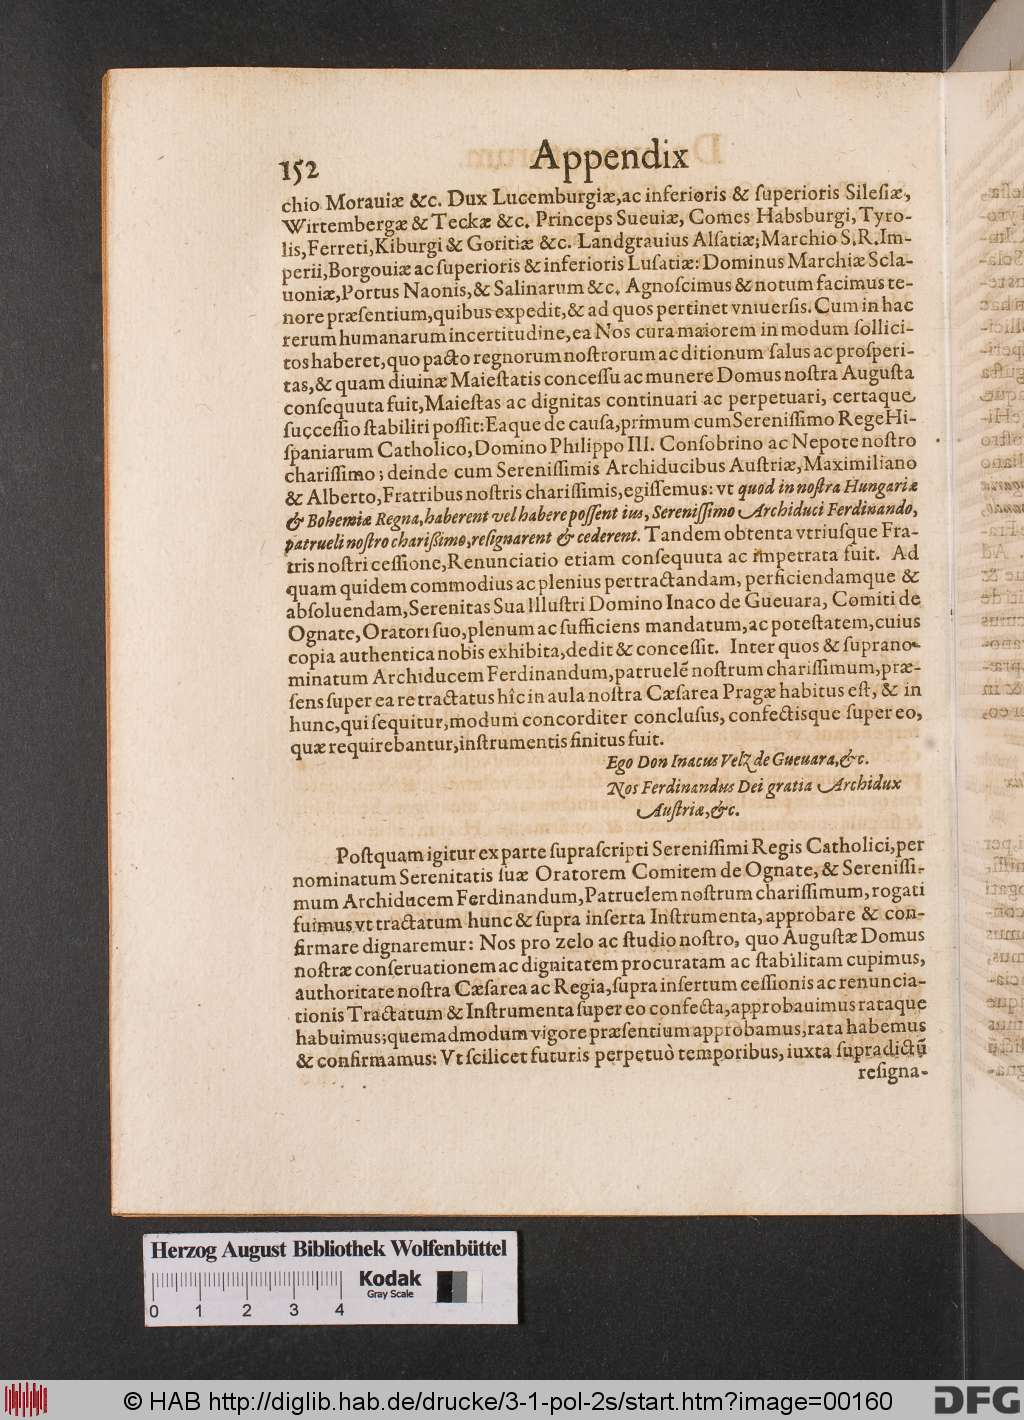 152 Appendix
chio Morauiæ &c. Dux Lucemburgiæ,ac inferioris & ſuperioris Sileſiæ,
Wirtembergæ & Teckæ &c. Princeps Sueuiæ, Comes Habsburgi, Tyro-
lis,Ferreti,Kiburgi & Goritiæ &c. Landgrauius Alſatiæ; Marchio S.R.Im-
perii,Borgouiæ ac ſuperioris & inferioris Luſatiæ: Dominus Marchiæ Scla-
uoniæ,Portus Naonis,& Salinarum &c. Agnoſcimus & notum facimus te-
nore præſentium,quibus expedit,& ad quos pertinet vniuerſis. Cum in hac
rerum humanarum incertitudine,ea Nos cura maiorem in modum ſollici-
tos haberet,quo pacto regnorum noſtrorum ac ditionum ſalus ac proſperi-
tas,& quam diuinæ Maieſtatis conceſſu ac munere Domus noſtra Auguſta
conſequuta fuit,Maieſtas ac dignitas continuari ac perpetuari, certaque
ſucceſſio ſtabiliri poſſit:Eaque de cauſa,primum cum Sereniſſimo Rege Hi-
ſpaniarum Catholico,Domino Philippo III. Conſobrino ac Nepote noſtro
chariſſimo; deinde cum Sereniſſimis Archiducibus Auſtriæ,Maximiliano
& Alberto,Fratribus noſtris chariſſimis,egiſſemus: vt quod in noſtra Hungariæ
& Bohemiæ Regna,haberent vel habere poſſent ius, Sereniſſimo Archiduci Ferdinando,
patrueli noſtro charißimo,reſignarent & cederent. Tandem obtenta vtriuſque Fra-
tris noſtri ceſſione,Renunciatio etiam conſequuta ac impetrata fuit. Ad
quam quidem commodius ac plenius pertractandam, perficiendamque &
abſoluendam,Serenitas Sua Illuſtri Domino Inaco de Gueuara, Comiti de
Ognate,Oratori ſuo,plenum ac ſufficiens mandatum,ac poteſtatem,cuius
copia authentica nobis exhibita,dedit & conceſſit. Inter quos & ſuprano-
minatum Archiducem Ferdinandum,patruelē noſtrum chariſſimum,præ-
ſens ſuper ea re tractatus hîc in aula noſtra Cæſarea Pragæ habitus eſt, & in
hunc,qui ſequitur,modum concorditer concluſus, confectisque ſuper eo,
quæ requirebantur,inſtrumentis finitus fuit.
Ego Don Inacus Velz de Gueuara,&c.
Nos Ferdinandus Dei gratia Archidux
Auſtriæ,&c.
Poſtquam igitur ex parte ſupraſcripti Sereniſſimi Regis Catholici,per
nominatum Serenitatis ſuæ Oratorem Comitem de Ognate, & Sereniſſi-
mum Archiducem Ferdinandum,Patruelem noſtrum chariſſimum, rogati
fuimus vt tractatum hunc & ſupra inſerta Inſtrumenta, approbare & con-
firmare dignaremur: Nos pro zelo ac ſtudio noſtro, quo Auguſtæ Domus
noſtræ conſeruationem ac dignitatem procuratam ac ſtabilitam cupimus,
authoritate noſtra Cæſarea ac Regia,ſupra inſertum ceſſionis ac renuncia-
tionis Tractatum & Inſtrumenta ſuper eo confecta,approbauimus rataque
habuimus;quemadmodum vigore præſentium approbamus,rata habemus
& confirmamus: Vt ſcilicet futuris perpetuò temporibus, iuxta ſupradictū
reſigna-
Herzog August Bibliothek Wolfenbüttel
Kodak
Gray Scale
0 1 2 3 4
© HAB http://diglib.hab.de/drucke/3-1-pol-2s/start.htm?image=00160
DFG